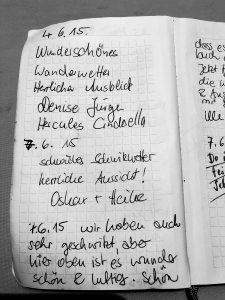 4.6.15.
Wunderschönes
Wanderwetter
Herrlicher Ausblick
Denise Jürge
Hercules Cinderella
7.6.15
schwüles Schwitzwetter
herrliche Aussicht!
Oskar + Heike
7.6.15 wir haben auch
sehr geschwitzt, aber
hier oben ist es wunder
schön & luftig. Schön
dass es
auch
Jetzt
die w
& Au
7.6
Do i